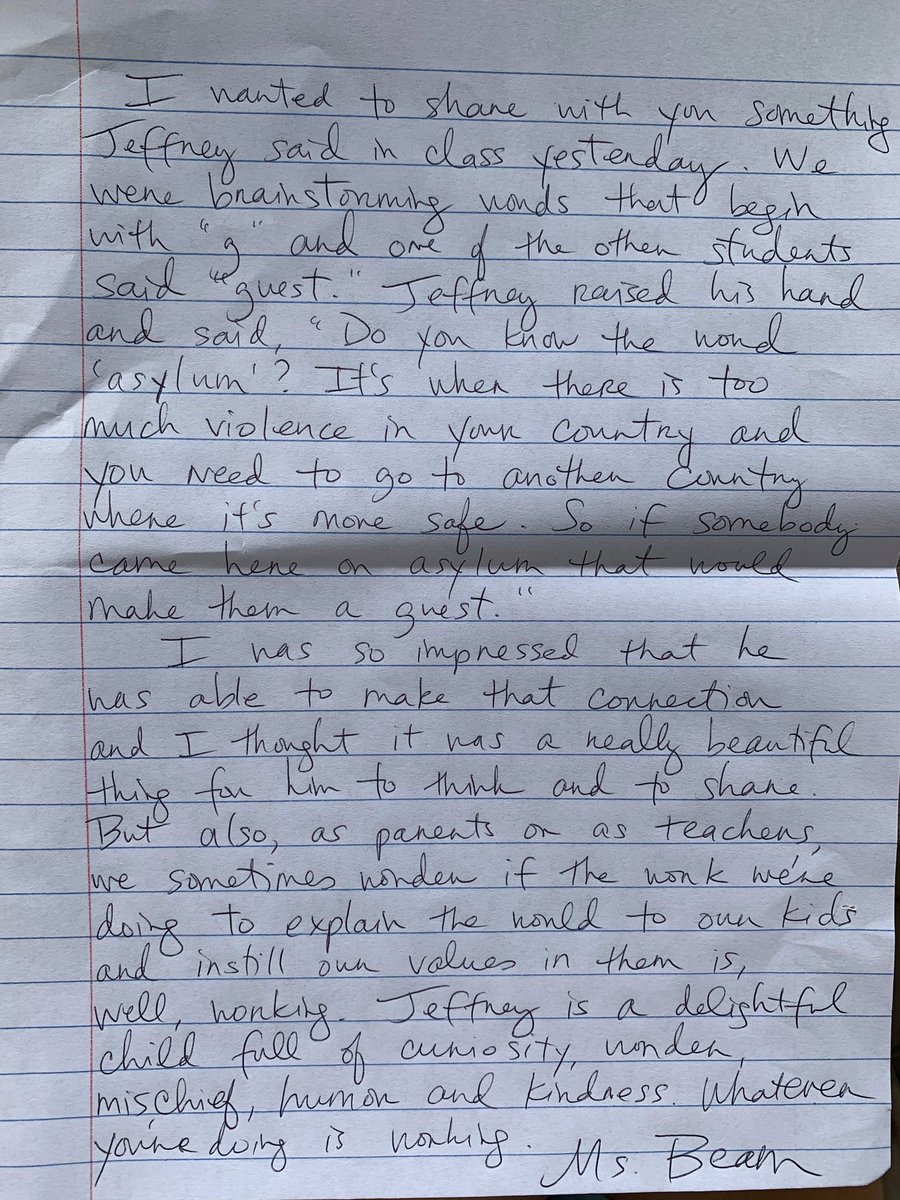 I wanted to share with you something
Jeffrey said in class yesterday. We
were brainstorming words that begin
with "g" and one of the other students
said "guest." Jeffrey raised his hand
and said, "Do you know the word
'asylum'? It's when there is too
much violence in your country and
you need to go to another country
where it's more safe. So if somebody
came here on asylum that would
make them a guest."
I was so impressed that he
was able to make that connection
and I thought it was a really beautiful
thing for him to think and to share.
But also, as parents or as teachers,
we sometimes wonder if the work we're
doing to explain the world to our kids
and instill our values in them is,
well, working. Jeffrey is a delightful
child full of curiosity, wonder,
mischief, humor and kindness. Whatever
you're doing is working.
Ms. Beam